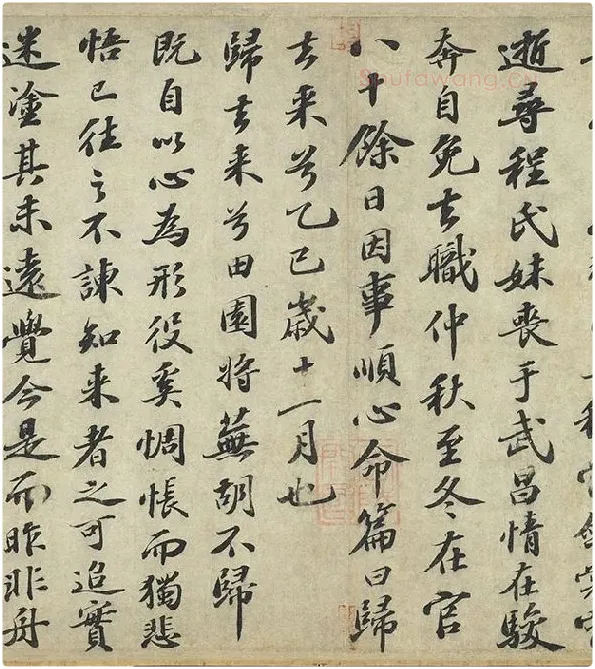 逝尋程氏妹喪于武昌情在駿
奔自免去職仲秋至冬在官
八十餘日因事順心命篇曰歸
去来兮乙巳歲十一月也
歸去来兮田園将蕪胡不歸
既自以心為形役奚惆悵而獨悲
悟已往之不諫知来者之可追實
迷塗其未遠覺今是而昨非舟
shufawang.cn